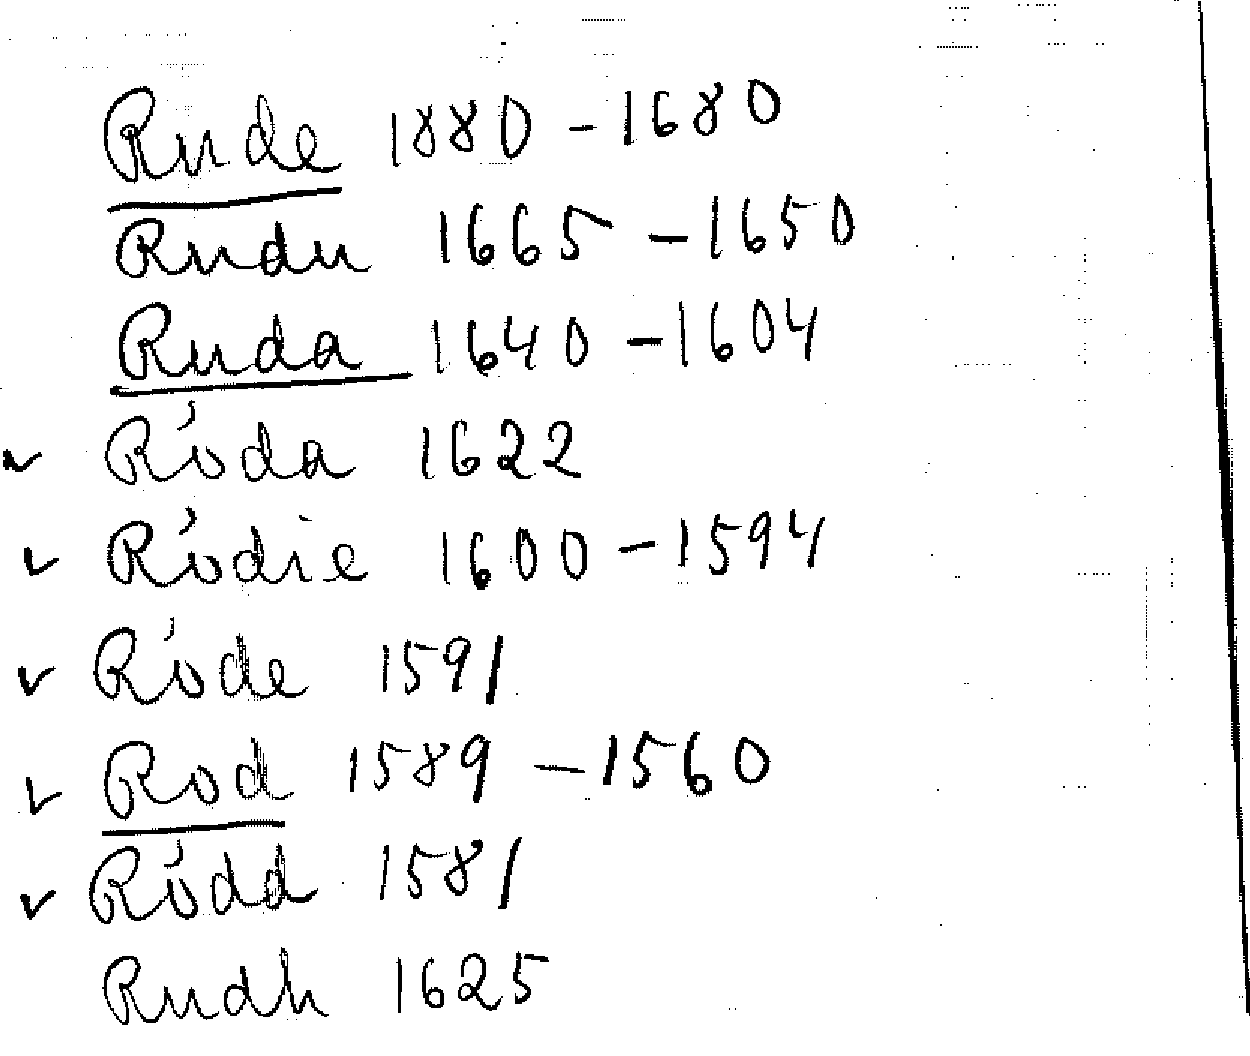 Rude 1880 - 1680
Rudu 1665 - 1650
Ruda 1640 - 1604
Róda 1622
Ródie 1600 - 1594
Róde 1591
Rod 1589 - 1560
Ródd 1581
Rudh 1625